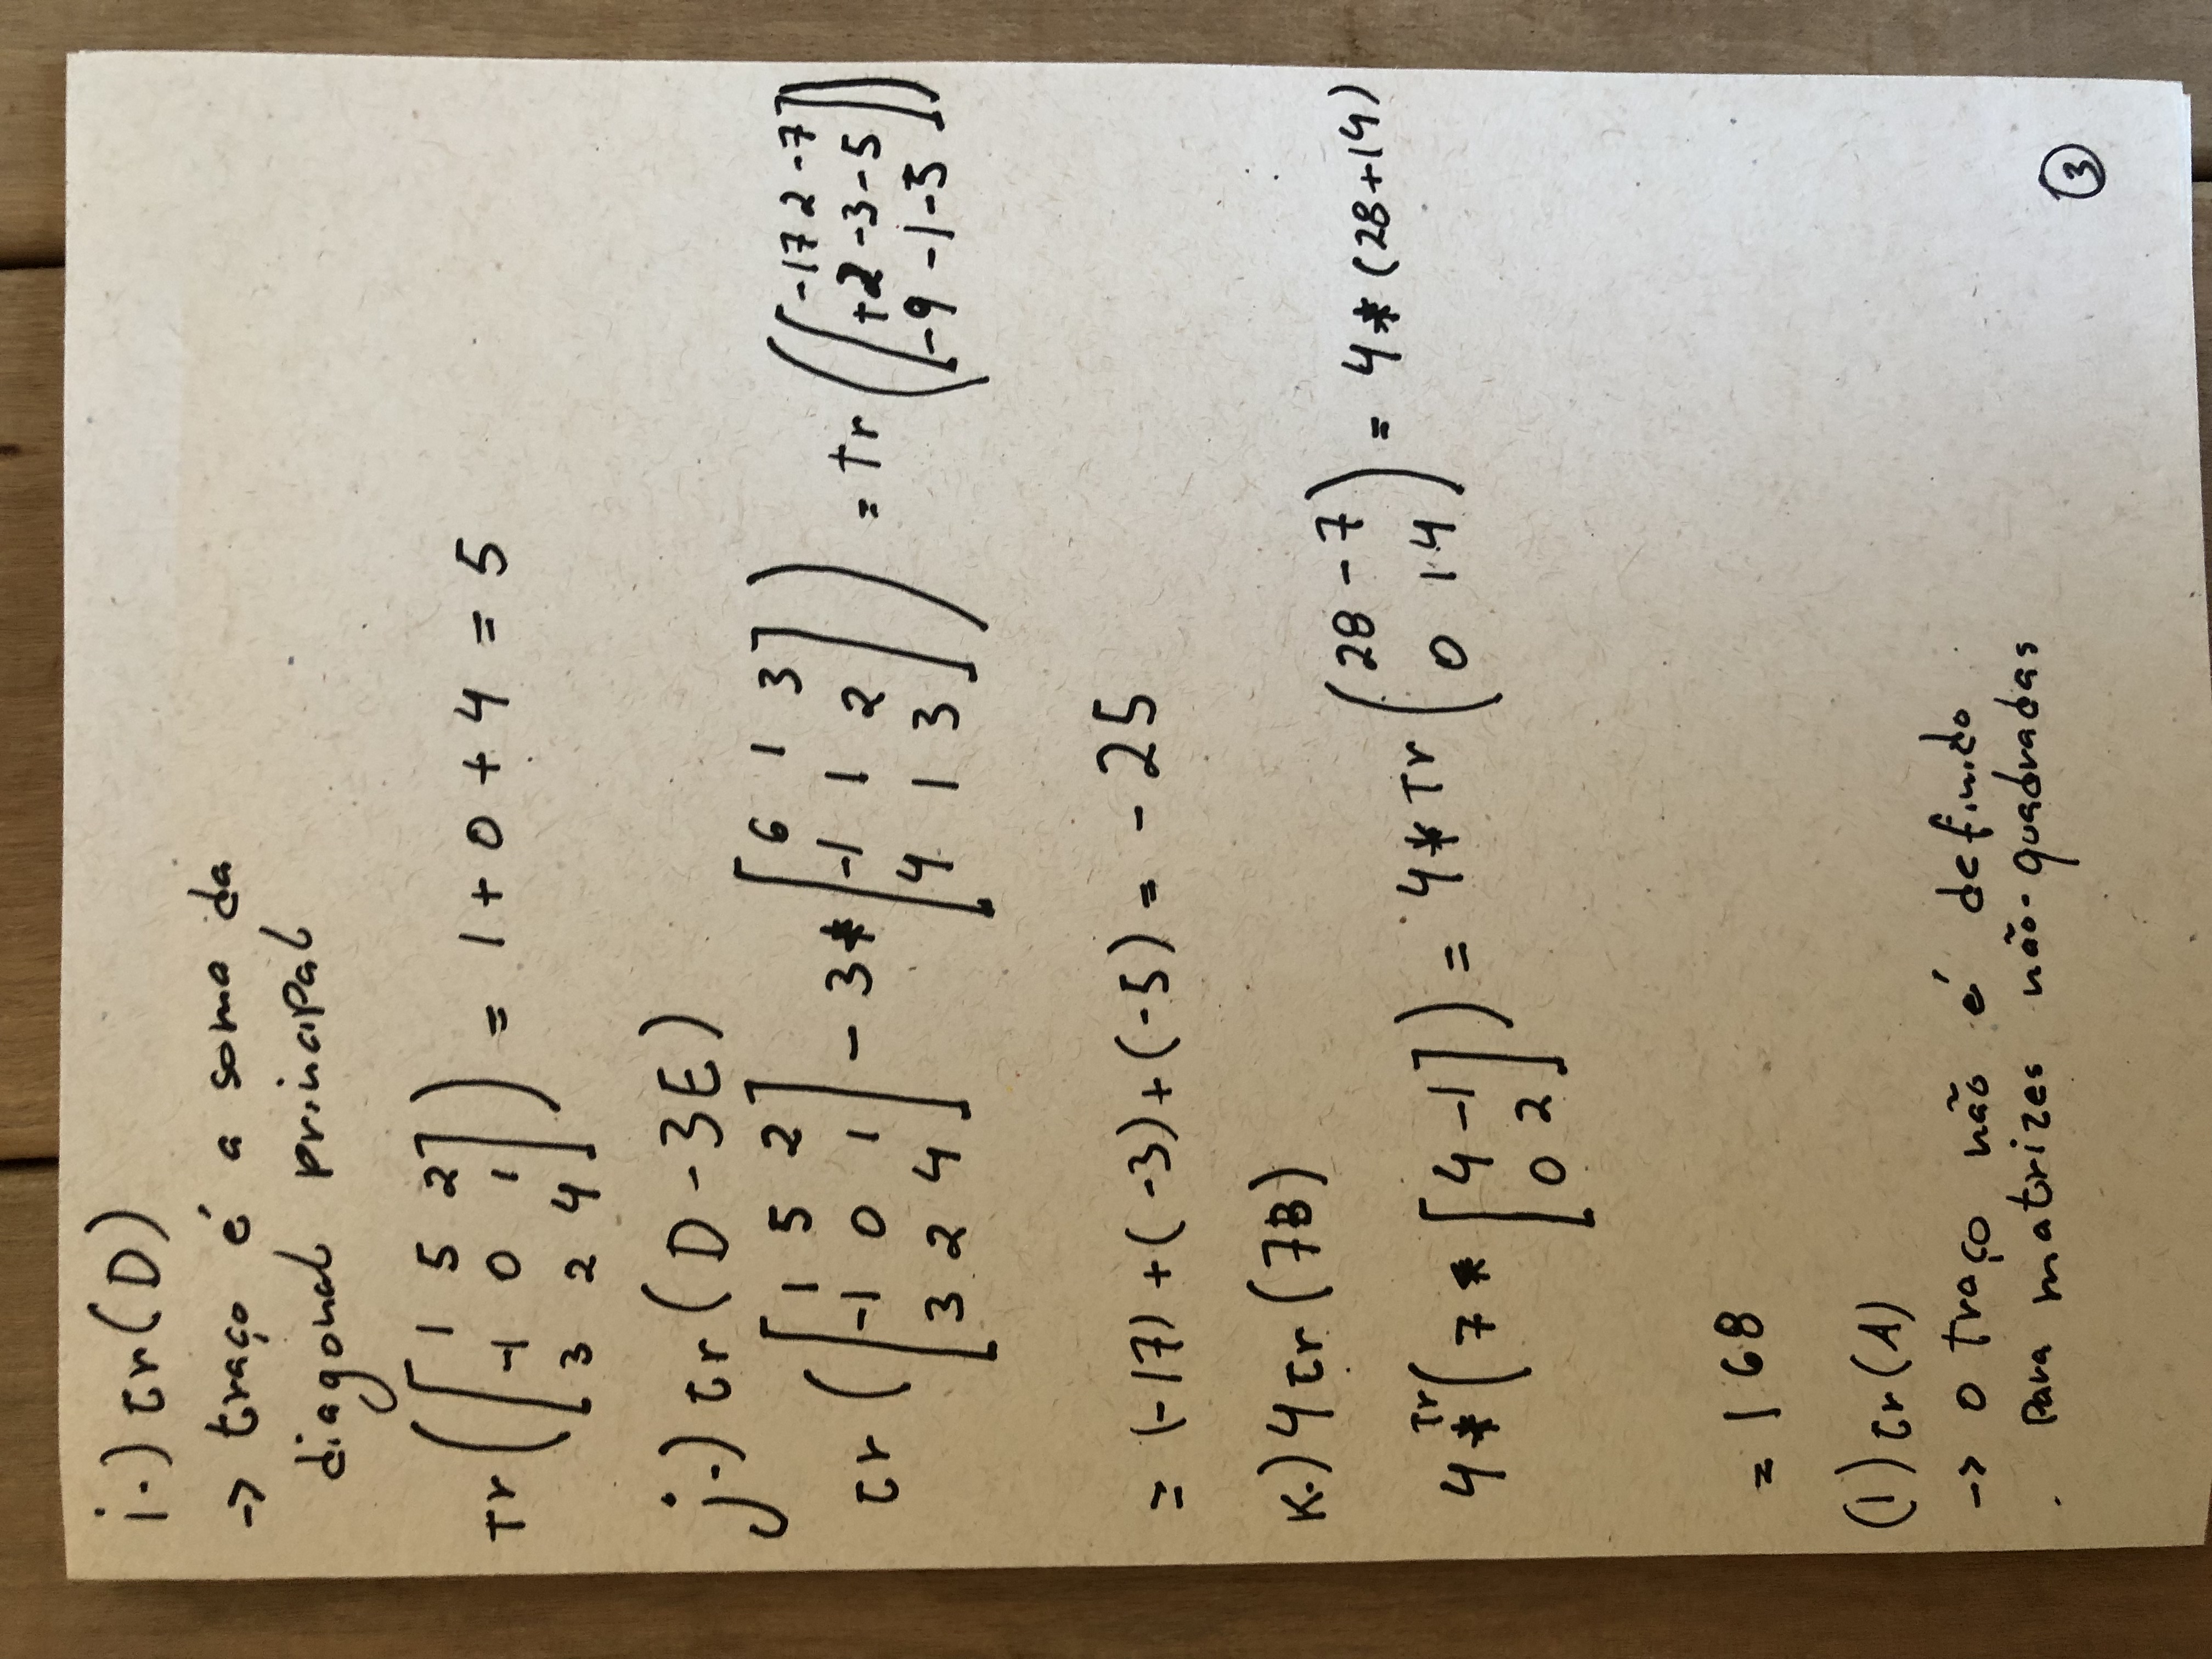 i.) tr(D)
-> traço é a soma da
diagonal principal
Tr([1 5 2
-1 0 1
3 2 4]) = 1 + 0 + 4 = 5
j.) tr(D - 3E)
tr([1 5 2
-1 0 1
3 2 4] - 3*[6 1 3
-1 1 2
4 1 3]) = Tr([-17 2 -7
+2 -3 -5
-9 -1 -5])
= (-17) + (-3) + (-5) = -25
K.) 4 tr(7B)
4*Tr(7*[4 -1
0 2]) = 4*Tr(28 -7
0 14) = 4*(28+14)
= 168
(l) tr(A)
-> o traço não é definido
para matrizes não-quadradas
3